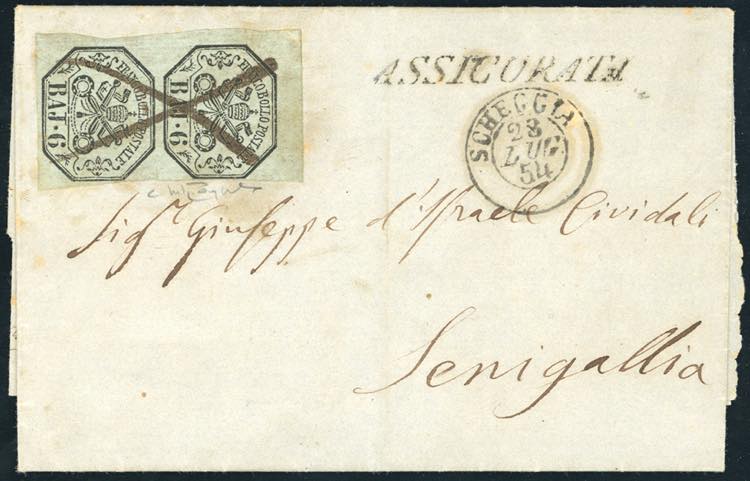 FRANCO BOLLO POSTALE
BAJ·6
FRANCO BOLLO POSTALE
BAJ·6
ASSICURATA
SCHEGGIA
23
LUG
54
Sigr Giuseppe d'Israele Cividali
Senigallia